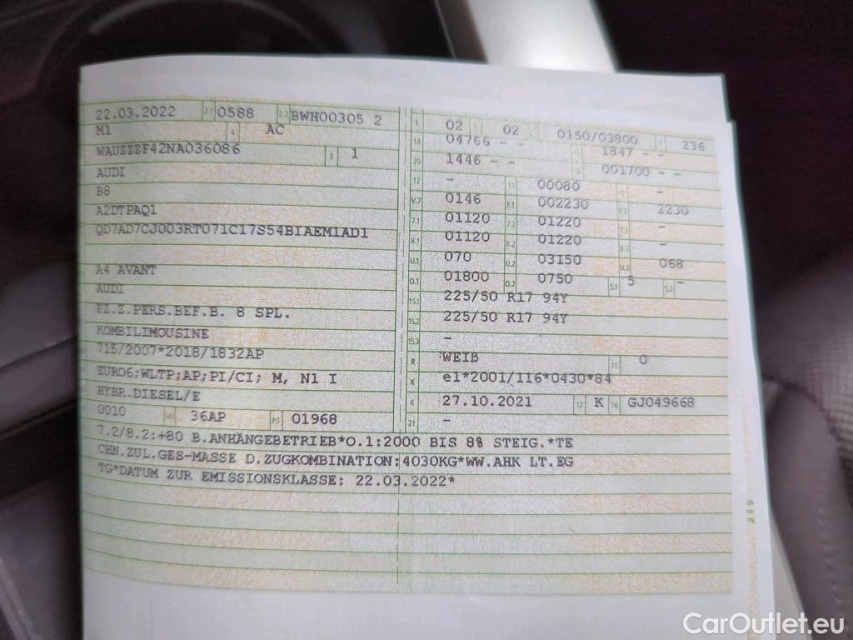 22.03.2022 2.1 0588 2.2 BWH00305 2
M1 4 AC
WAUZZZF42NA036086 3 1
AUDI
B8
A2DTPAQ1
QD7AD7CJ003RT071C17S54BIAEM1AD1
A4 AVANT
AUDI
FZ.Z.PERS.BEF.B. 8 SPL.
KOMBILIMOUSINE
715/2007*2018/1832AP
EURO6;WLTP;AP;PI/CI; M, N1 I
HYBR.DIESEL/E
0010 14 36AP P.1 01968
L 02 02 0150/03800 T 236
18 04766 - - 1847 - -
20 1446 - - 001700 - -
12 - 13 00080 -
V.7 0146 F.1 002230 F.2 2230
7.1 01120 7.2 01220 -
8.1 01120 8.2 01220 -
U.1 070 U.2 03150 U.3 068
O.1 01800 O.2 0750 S.1 5 S.2 -
15.1 225/50 R17 94Y
15.2 225/50 R17 94Y
15.3 -
R WEIß 11 0
K e1*2001/116*0430*84
6 27.10.2021 17 K 16 GJ049668
21 -
7.2/8.2:+80 B.ANHÄNGEBETRIEB*O.1:2000 BIS 8% STEIG.*TE
CHN.ZUL.GES-MASSE D.ZUGKOMBINATION:4030KG*WW.AHK LT.EG
TG*DATUM ZUR EMISSIONSKLASSE: 22.03.2022*
CarOutlet.eu